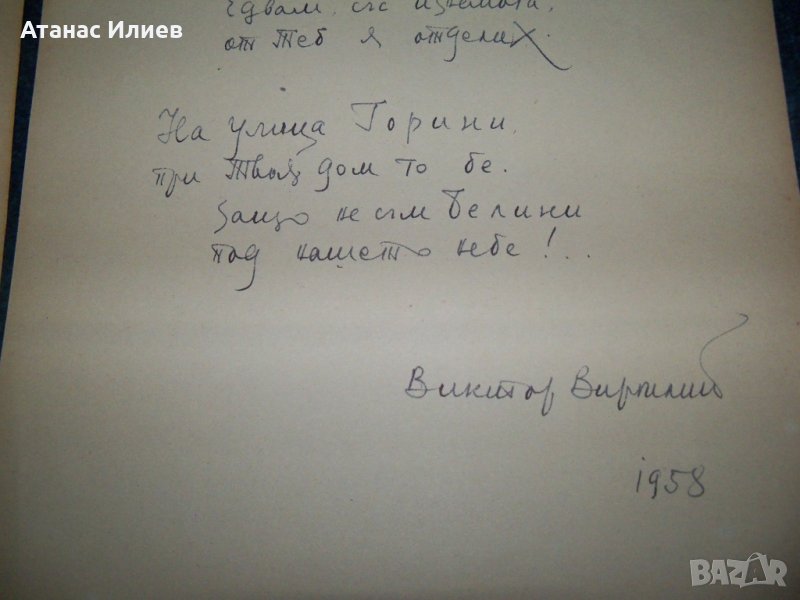 Атанас Илиев
едвам със изнемога,
от теб я отделих.
На улица Горини,
при твоя дом то бе.
Защо не съм Белини
под нашето небе!...
Виктор Виргилий
1958
BAZAR